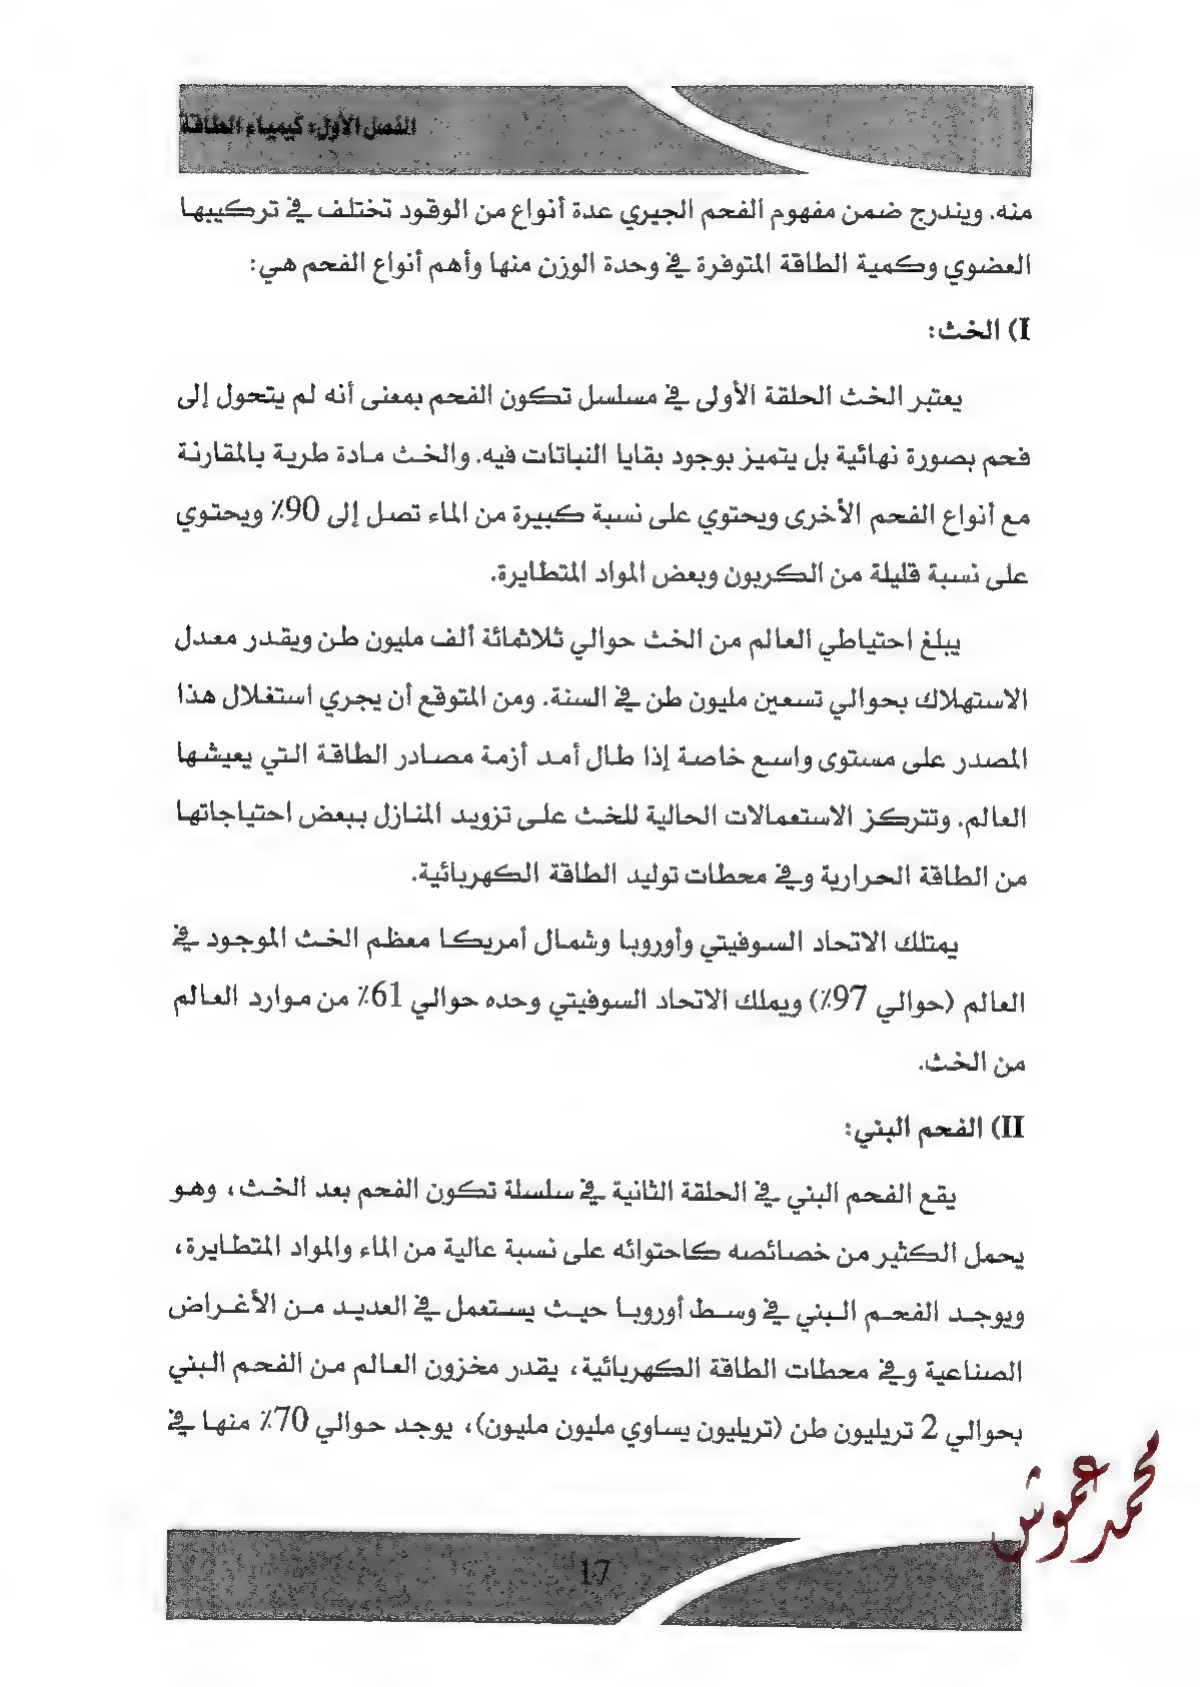 الفصل الأول: كيمياء الطاقة
منه. ويندرج ضمن مفهوم الفحم الجيري عدة أنواع من الوقود تختلف في تركيبها
العضوي وكمية الطاقة المتوفرة في وحدة الوزن منها وأهم أنواع الفحم هي:
I) الخث:
يعتبر الخث الحلقة الأولى في مسلسل تكون الفحم بمعنى أنه لم يتحول إلى
فحم بصورة نهائية بل يتميز بوجود بقايا النباتات فيه. والخث مادة طرية بالمقارنة
مع أنواع الفحم الأخرى ويحتوي على نسبة كبيرة من الماء تصل إلى 90٪ ويحتوي
على نسبة قليلة من الكربون وبعض المواد المتطايرة.
يبلغ احتياطي العالم من الخث حوالي ثلاثمائة ألف مليون طن ويقدر معدل
الاستهلاك بحوالي تسعين مليون طن في السنة. ومن المتوقع أن يجري استغلال هذا
المصدر على مستوى واسع خاصة إذا طال أمد أزمة مصادر الطاقة التي يعيشها
العالم. وتتركز الاستعمالات الحالية للخث على تزويد المنازل ببعض احتياجاتها
من الطاقة الحرارية وفي محطات توليد الطاقة الكهربائية.
يمتلك الاتحاد السوفيتي وأوروبا وشمال أمريكا معظم الخث الموجود في
العالم (حوالي 97٪) ويملك الاتحاد السوفيتي وحده حوالي 61٪ من موارد العالم
من الخث.
II) الفحم البني:
يقع الفحم البني في الحلقة الثانية في سلسلة تكون الفحم بعد الخث، وهو
يحمل الكثير من خصائصه كاحتوائه على نسبة عالية من الماء والمواد المتطايرة،
ويوجد الفحم البني في وسط أوروبا حيث يستعمل في العديد من الأغراض
الصناعية وفي محطات الطاقة الكهربائية، يقدر مخزون العالم من الفحم البني
بحوالي 2 تريليون طن (تريليون يساوي مليون مليون)، يوجد حوالي 70٪ منها في
محمد عموش
17